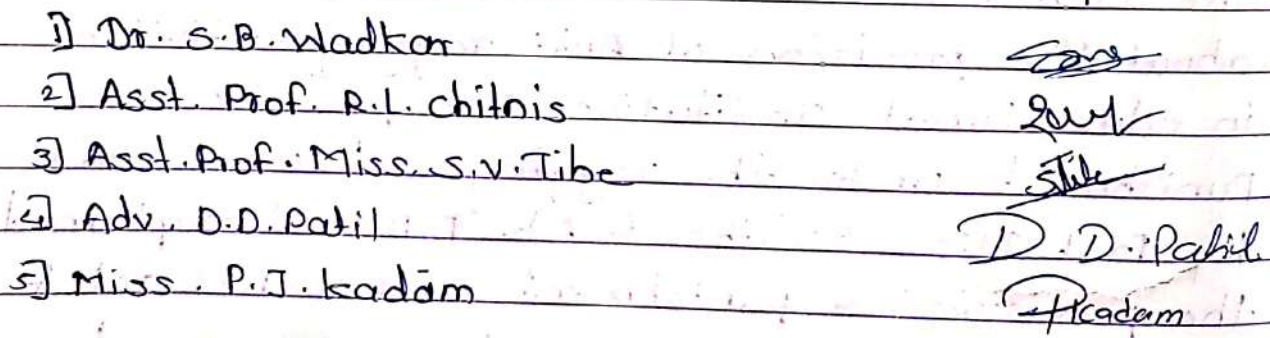 1] Dr. S.B. Wadkar
2] Asst. Prof. R.L. chitnis
3] Asst. Prof. Miss. S.V. Tibe STibe
4] Adv. D.D. Patil D.D. Patil
5] Miss. P.J. kadam PKadam